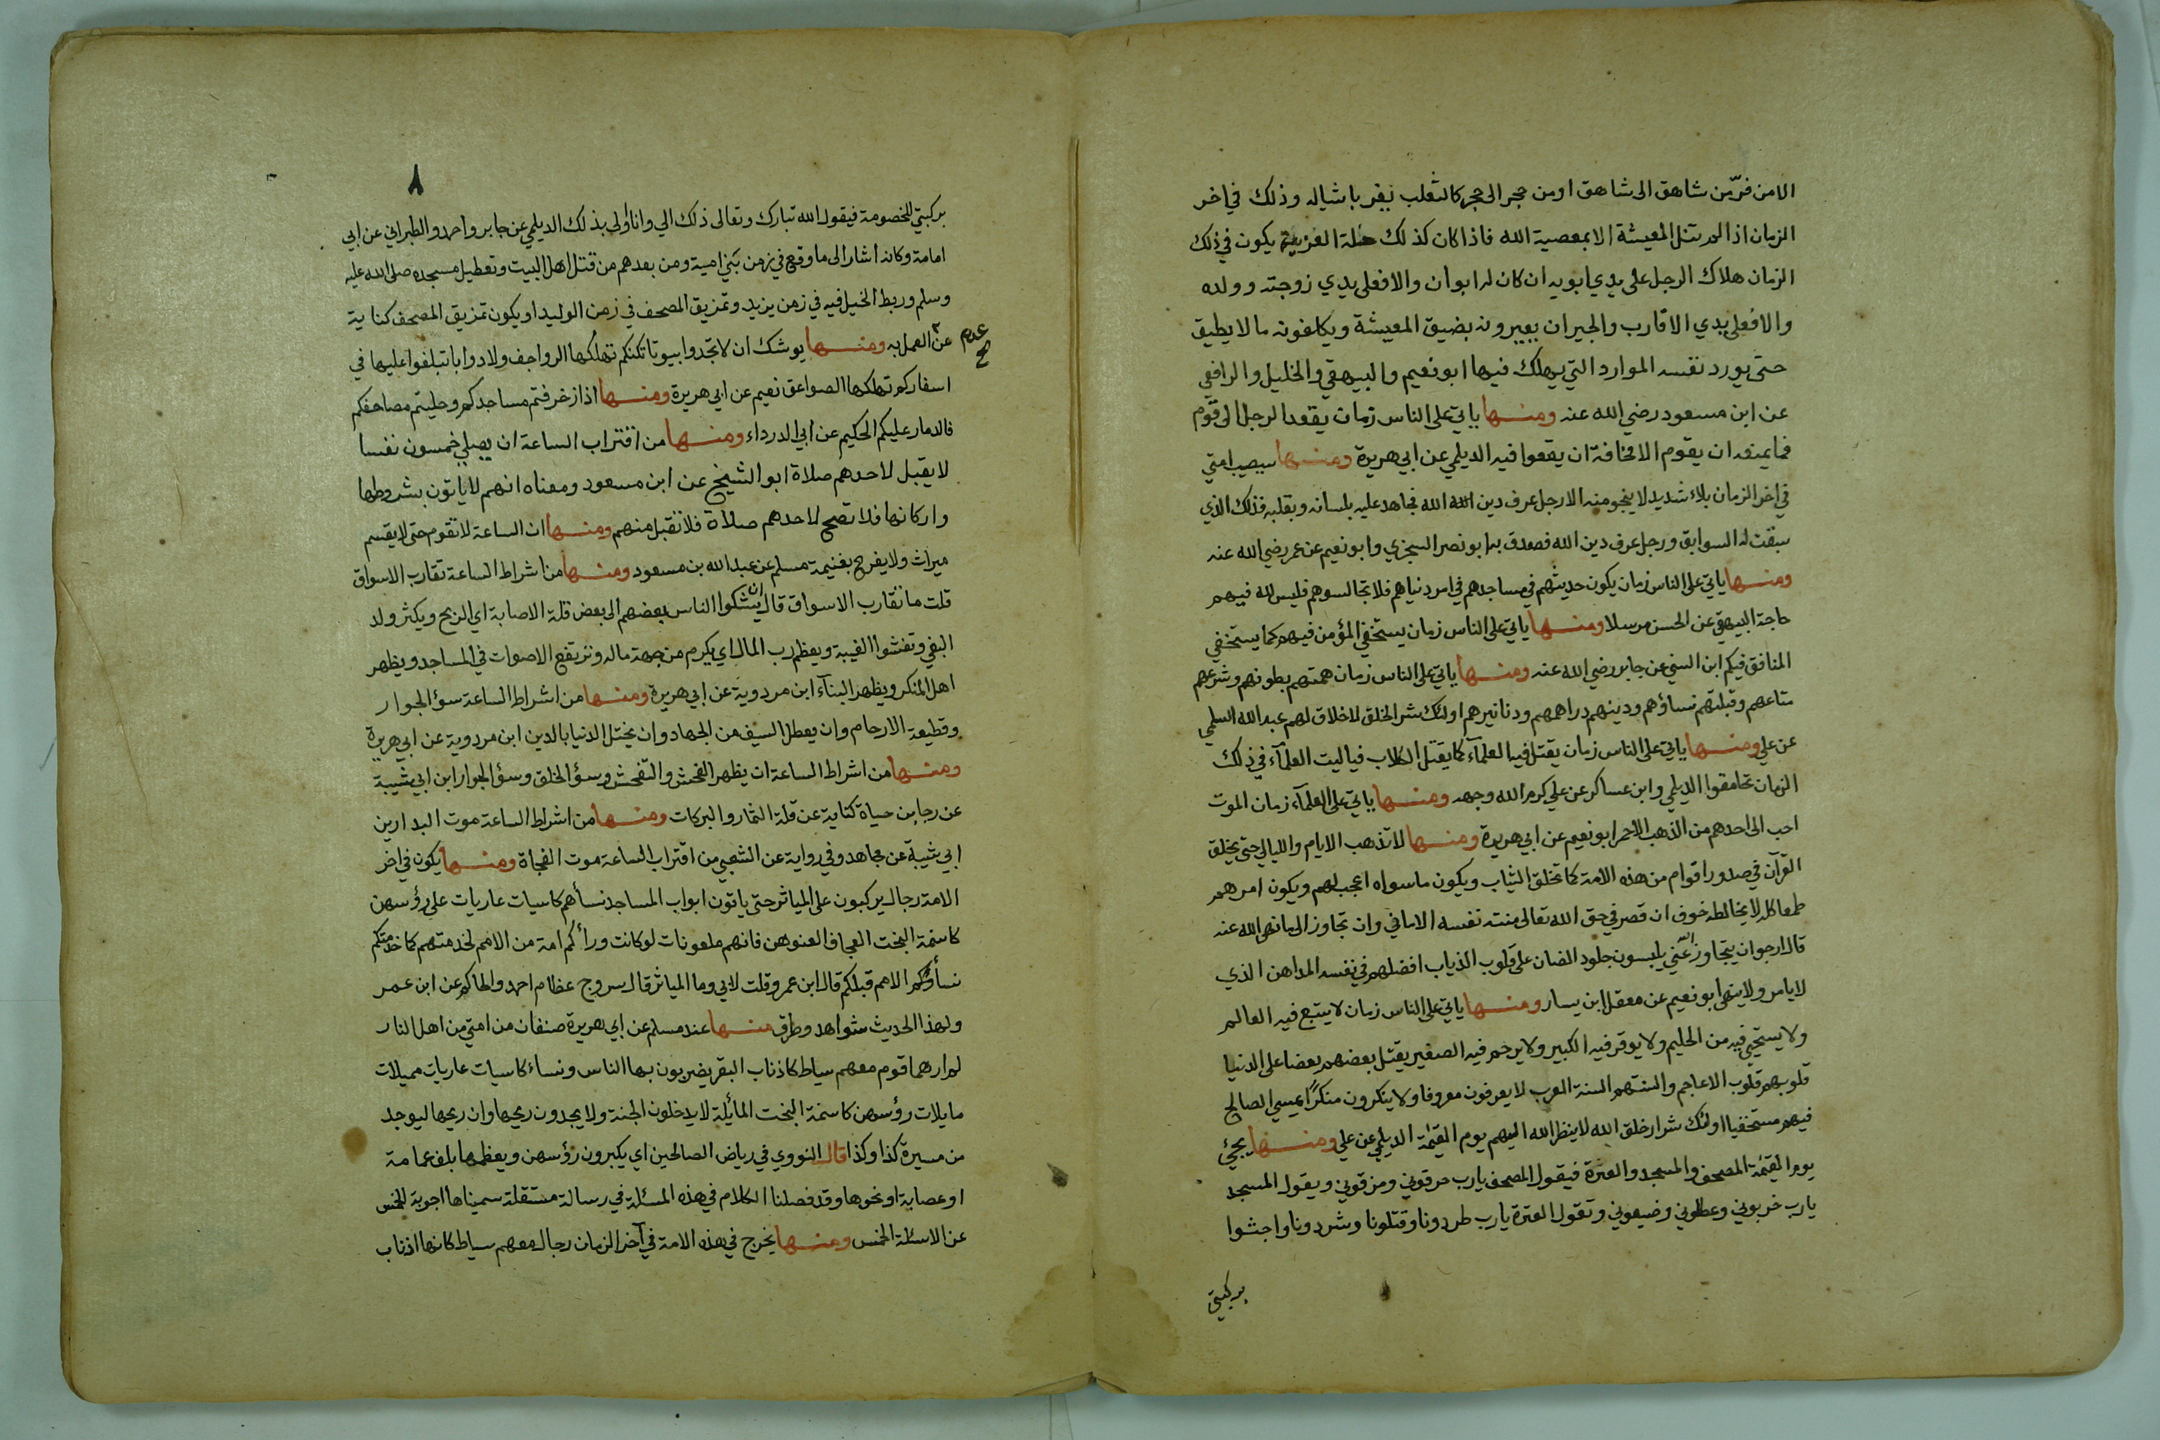 الا من فرّ من شاهق الى شاهق او من جحر الى جحر كالثعلب يفر باشباله وذلك في اخر
الزمان اذا لم تنل المعيشة الا بمعصية الله فاذا كان كذلك حلة العزبة يكون في ذلك
الزمان هلاك الرجل على يدي ابويه ان كان له ابوان والا فعلى يدي زوجته وولده
والا فعلى يدي الاقارب والجيران يعيرونه بضيق المعيشة ويكلفونه ما لا يطيق
حتى يورد نفسه الموارد التي يهلك فيها ابو نعيم والبيهقي والخليل والرافعي
عن ابن مسعود رضي الله عنه ومنها ياتي على الناس زمان يقعد الرجل الى قوم
فما يمنعه ان يقوم الا مخافة ان يقعوا فيه الديلمي عن ابي هريرة ومنها سيصيب امتي
في اخر الزمان بلاء شديد لا ينجو منه الا رجل عرف دين الله فجاهد عليه بلسانه وبقلبه فذلك الذي
سبقت له السوابق ورجل عرف دين الله فصدق به ابو نصر السجزي وابو نعيم عن عمر رضي الله عنه
ومنها ياتي على الناس زمان يكون حديثهم في مساجدهم في امر دنياهم فلا تجالسوهم فليس لله فيهم
حاجة البيهقي عن الحسن مرسلا ومنها ياتي على الناس زمان يستخفي المؤمن فيهم كما يستخفي
المنافق فيكم ابن السني عن جابر رضي الله عنه ومنها ياتي على الناس زمان همتهم بطونهم وشرعهم
متاعهم وقبلتهم نساؤهم ودينهم دراهمهم ودنانيرهم اولئك شر الخلق لا خلاق لهم عبد الله السلمي
عن علي ومنها ياتي على الناس زمان يقتل فيه العلمآء كما يقتل الكلاب فيا ليت العلمآء في ذلك
الزمان تحامقوا الديلمي وابن عساكر عن علي كرم الله وجهه ومنها ياتي على العلمآء زمان الموت
احب الى احدهم من الذهب الاحمر ابو نعيم عن ابي هريرة ومنها لا تذهب الايام والليالي حتى يخلق
القرآن في صدور اقوام من هذه الامة كما تخلق الثياب ويكون ما سواه اعجب لهم ويكون امرهم
طمعا كله لا يخالطه خوف ان قصر في حق الله تعالى منته نفسه الاماني وان تجاوز الى ما نهى الله عنه
قال ارجو ان يتجاوز الله عني يلبسون جلود الضان على قلوب الذياب افضلهم في نفسه المداهن الذي
لا يامر ولا ينهى ابو نعيم عن معقل ابن يسار ومنها ياتي على الناس زمان لا يتبع فيه العالم
ولا يستحيى فيه من الحليم ولا يوقر فيه الكبير ولا يرحم فيه الصغير يقتل بعضهم بعضا على الدنيا
قلوبهم قلوب الاعاجم والسنتهم السنة العرب لا يعرفون معروفا ولا ينكرون منكرًا يمسي الصالح
فيهم مستخفيا اولئك شرار خلق الله لا ينظر الله اليهم يوم القيمة الديلمي عن علي ومنها يجئ
يوم القيمة المصحف والمسجد والعترة فيقول المصحف يا رب حرقوني ومزقوني ويقول المسجد
يا رب خربوني وعطلوني وضيعوني وتقول العترة يا رب طردونا وقتلونا وشردونا واجثوا
بركبتي
٨
بركبتي للخصومة فيقول الله تبارك وتعالى ذلك الي وانا اولى بذلك الديلمي عن جابر واحمد والطبراني عن ابي
امامة وكانه اشار الى ما وقع في زمن بني امية ومن بعدهم من قتل اهل البيت وتعطيل مسجده صلى الله عليه
وسلم وربط الخيل فيه في زمن يزيد وتمزيق المصحف في زمن الوليد او يكون تمزيق المصحف كناية
عدم صح
عن العمل به ومنها يوشك ان لا تجدوا بيوتا تكنكم تهلكها الرواجف ولا دوابا تبلغوا عليها في
اسفاركم تهلكها الصواعق نعيم عن ابي هريرة ومنها اذا زخرفتم مساجدكم وحليتم مصاحفكم
فالدمار عليكم الحكيم عن ابي الدرداء ومنها من اقتراب الساعة ان يصلي خمسون نفسا
لا يقبل لاحدهم صلاة ابو الشيخ عن ابن مسعود ومعناه انهم لا ياتون بشروطها
واركانها فلا تصح لاحدهم صلاة فلا تقبل منهم ومنها ان الساعة لا تقوم حتى لا يقسم
ميراث ولا يفرح بغنيمة مسلم عن عبد الله بن مسعود ومنها من اشراط الساعة تقارب الاسواق
قلت ما تقارب الاسواق قال ان يشكوا الناس بعضهم الى بعض قلة الاصابة اي الربح ويكثر ولد
البغي وتفشوا الغيبة ويعظم رب المال اي يكرم من جهة ماله وترتفع الاصوات في المساجد ويظهر
اهل المنكر ويظهر البنآء ابن مردوية عن ابي هريرة ومنها من اشراط الساعة سؤ الجوار
وقطيعة الارحام وان يعطل السيف من الجهاد وان يختل الدنيا بالدين ابن مردوية عن ابي هريرة
ومنها من اشراط الساعة ان يظهر الفحش والتفحش وسؤ الخلق وسؤ الجوار ابن ابي شيبة
عن رجا بن حياة كناية عن قلة الثمار والبركات ومنها من اشراط الساعة موت البدار ابن
ابي شيبة عن مجاهد وفي رواية عن الشعبي من اقتراب الساعة موت الفجاة ومنها يكون في اخر
الامة رجال يركبون على المياثر حتى ياتون ابواب المساجد نسأهم كاسيات عاريات على رؤسهن
كاسنمة البخت العجاف العنوهن فانهم ملعونات لو كانت ورأكم امة من الامم لخدمتهم كما خدمتكم
نسأؤكم الامم قبلكم قال ابن عمر وقلت لابي وما المياثر قال سروج عظام احمد والحاكم عن ابن عمر
ولهذا الحديث شواهد وطرق منها عند مسلم عن ابي هريرة صنفان من امتي من اهل النار
لم ارهما قوم معهم سياط كاذناب البقر يضربون بها الناس ونساء كاسيات عاريات مميلات
مايلات رؤسهن كاسنمة البخت المائلة لا يدخلون الجنة ولا يجدون ريحها وان ريحها ليوجد
من مسيرة كذا وكذا قال النووي في رياض الصالحين اي يكبرون رؤسهن ويعظمها بلف عمامة
او عصابة او نحوها وقد فصلنا الكلام في هذه المسئلة في رسالة مستقلة سميناها اجوبة الخمس
عن الاسئلة الخمس ومنها يخرج في هذه الامة في آخر الزمان رجال معهم سياط كانها اذناب